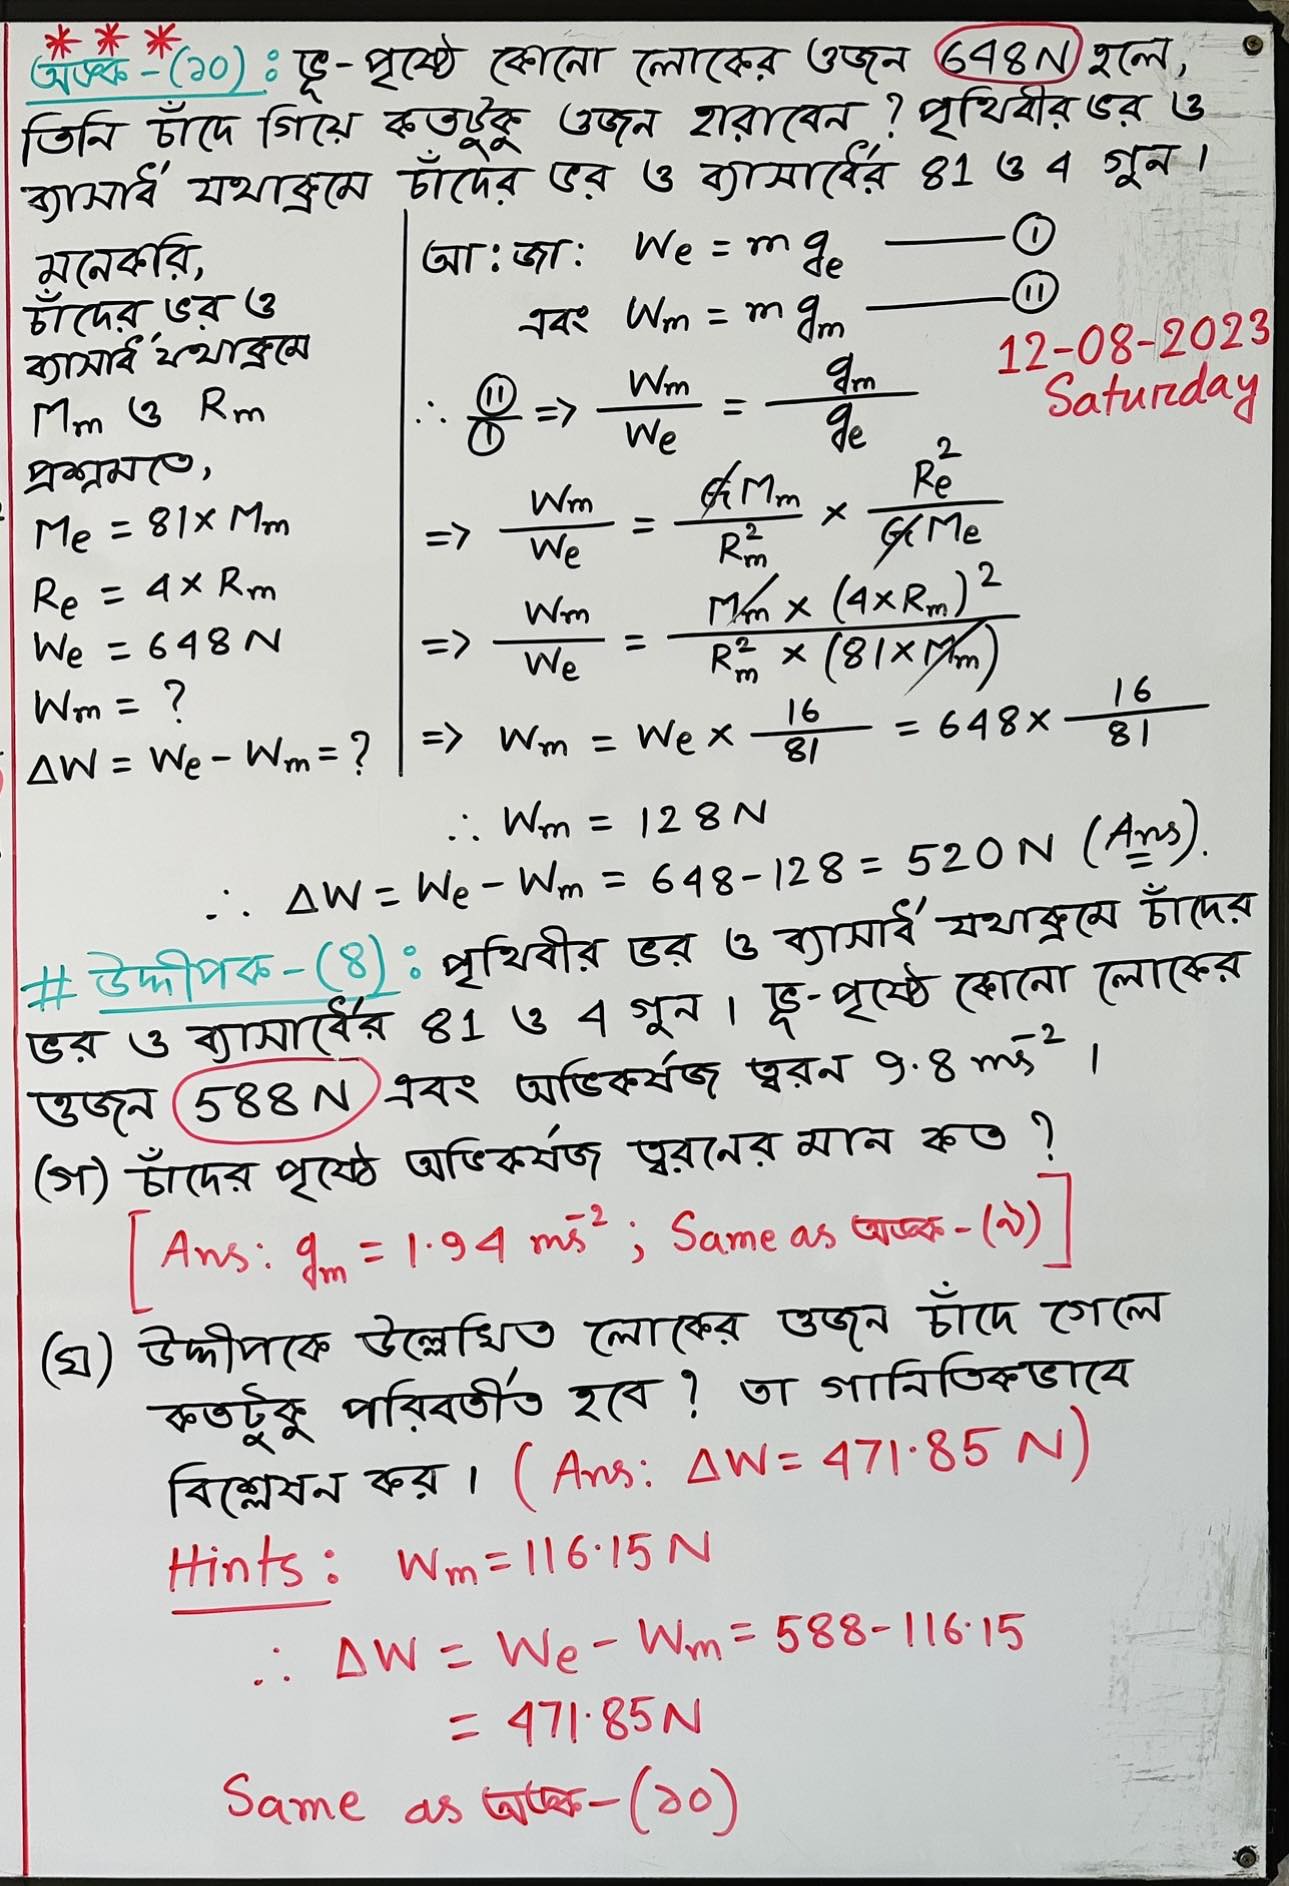 ***
অঙ্ক-(১০): ভূ-পৃষ্ঠে কোনো লোকের ওজন 648N হলে,
তিনি চাঁদে গিয়ে কতটুকু ওজন হারাবেন? পৃথিবীর ভর ও
ব্যাসার্ধ যথাক্রমে চাঁদের ভর ও ব্যাসার্ধের 81 ও 4 গুন।
মনেকরি,
চাঁদের ভর ও
ব্যাসার্ধ যথাক্রমে
Mm ও Rm
প্রশ্নমতে,
Me = 81 × Mm
Re = 4 × Rm
We = 648 N
Wm = ?
ΔW = We - Wm = ?
আ:জা: We = m ge —— (i)
এবং Wm = m gm —— (ii)
∴ (ii)/(i) => Wm/We = gm/ge
12-08-2023
Saturday
=> Wm/We = G Mm/Rm² × Re²/G Me
=> Wm/We = Mm × (4×Rm)²/Rm² × (81×Mm)
=> Wm = We × 16/81 = 648 × 16/81
∴ Wm = 128 N
∴ ΔW = We - Wm = 648 - 128 = 520 N (Ans).
# উদ্দীপক-(৪): পৃথিবীর ভর ও ব্যাসার্ধ যথাক্রমে চাঁদের
ভর ও ব্যাসার্ধের 81 ও 4 গুন। ভূ-পৃষ্ঠে কোনো লোকের
ওজন 588N এবং অভিকর্ষজ ত্বরন 9.8 ms⁻²।
(গ) চাঁদের পৃষ্ঠে অভিকর্ষজ ত্বরনের মান কত?
[Ans: gm = 1.94 ms⁻²; Same as অঙ্ক-(৯)]
(ঘ) উদ্দীপকে উল্লেখিত লোকের ওজন চাঁদে গেলে
কতটুকু পরিবর্তীত হবে? তা গানিতিকভাবে
বিশ্লেষন কর। (Ans: ΔW = 471.85 N)
Hints: Wm = 116.15 N
∴ ΔW = We - Wm = 588 - 116.15
= 471.85 N
Same as অঙ্ক-(১০)